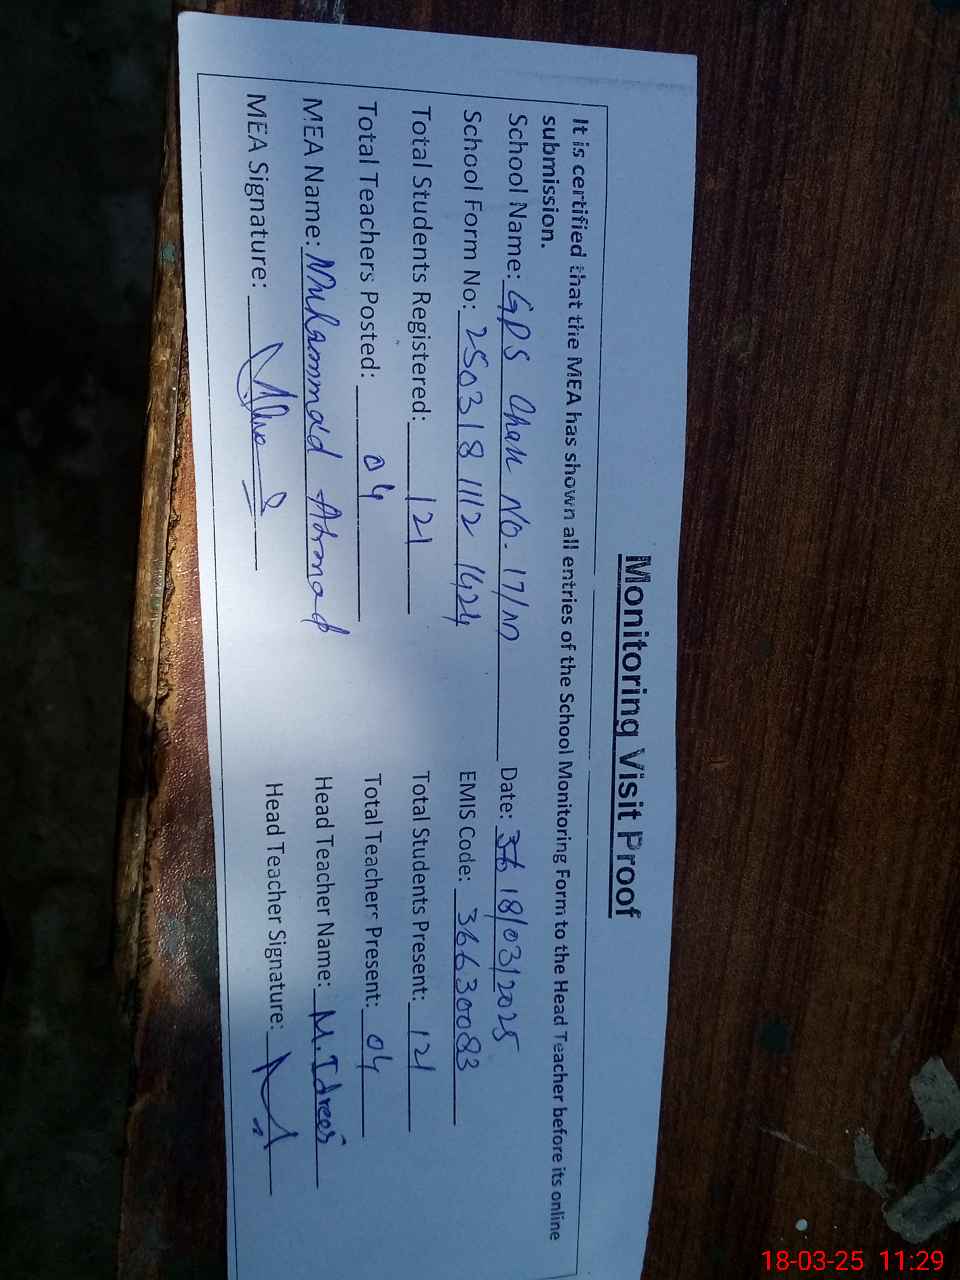 Monitoring Visit Proof
It is certified that the MEA has shown all entries of the School Monitoring Form to the Head Teacher before its online
submission.
School Name: GPS Chak No. 17/M Date: 18/03/2025
School Form No: 25031811121424 EMIS Code: 36630083
Total Students Registered: 121 Total Students Present: 121
Total Teachers Posted: 04 Total Teachers Present: 04
MEA Name: Muhammad Ahmad Head Teacher Name: M. Idrees
MEA Signature: Head Teacher Signature:
18-03-25 11:29